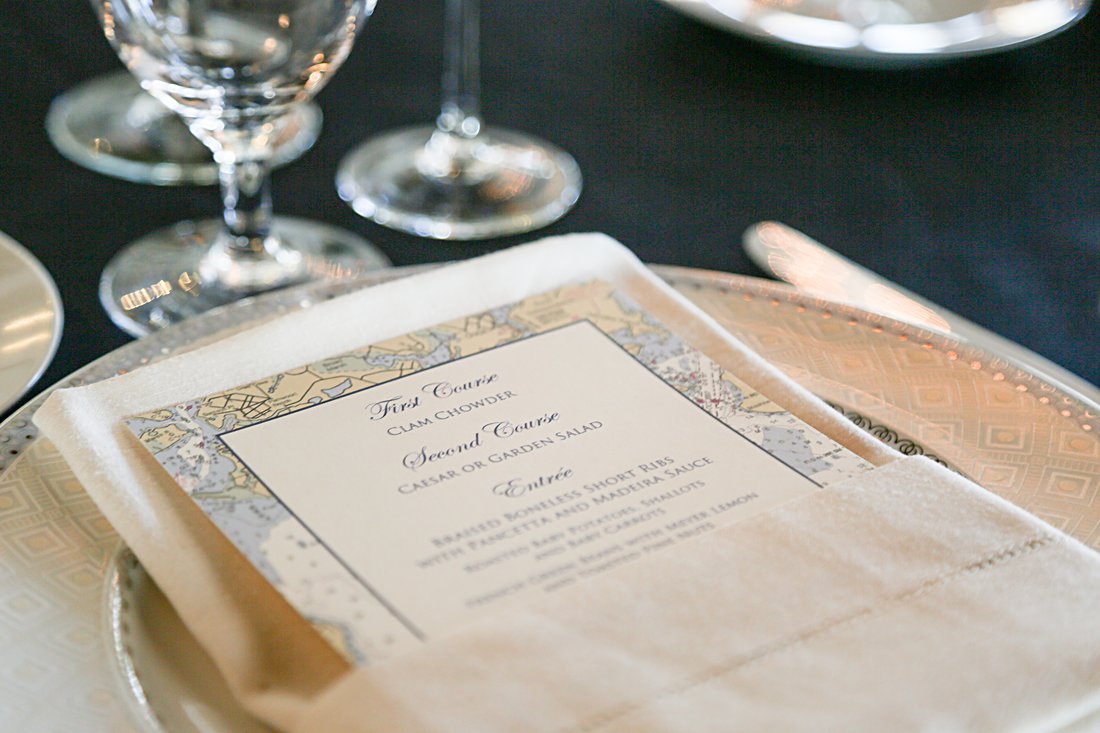 First Course
Clam Chowder
Second Course
Caesar or Garden Salad
Entrée
Braised Boneless Short Ribs
with Pancetta and Madeira Sauce
Roasted Baby Potatoes, Shallots
and Baby Carrots
French Green Beans with Meyer Lemon
and Toasted Pine Nuts